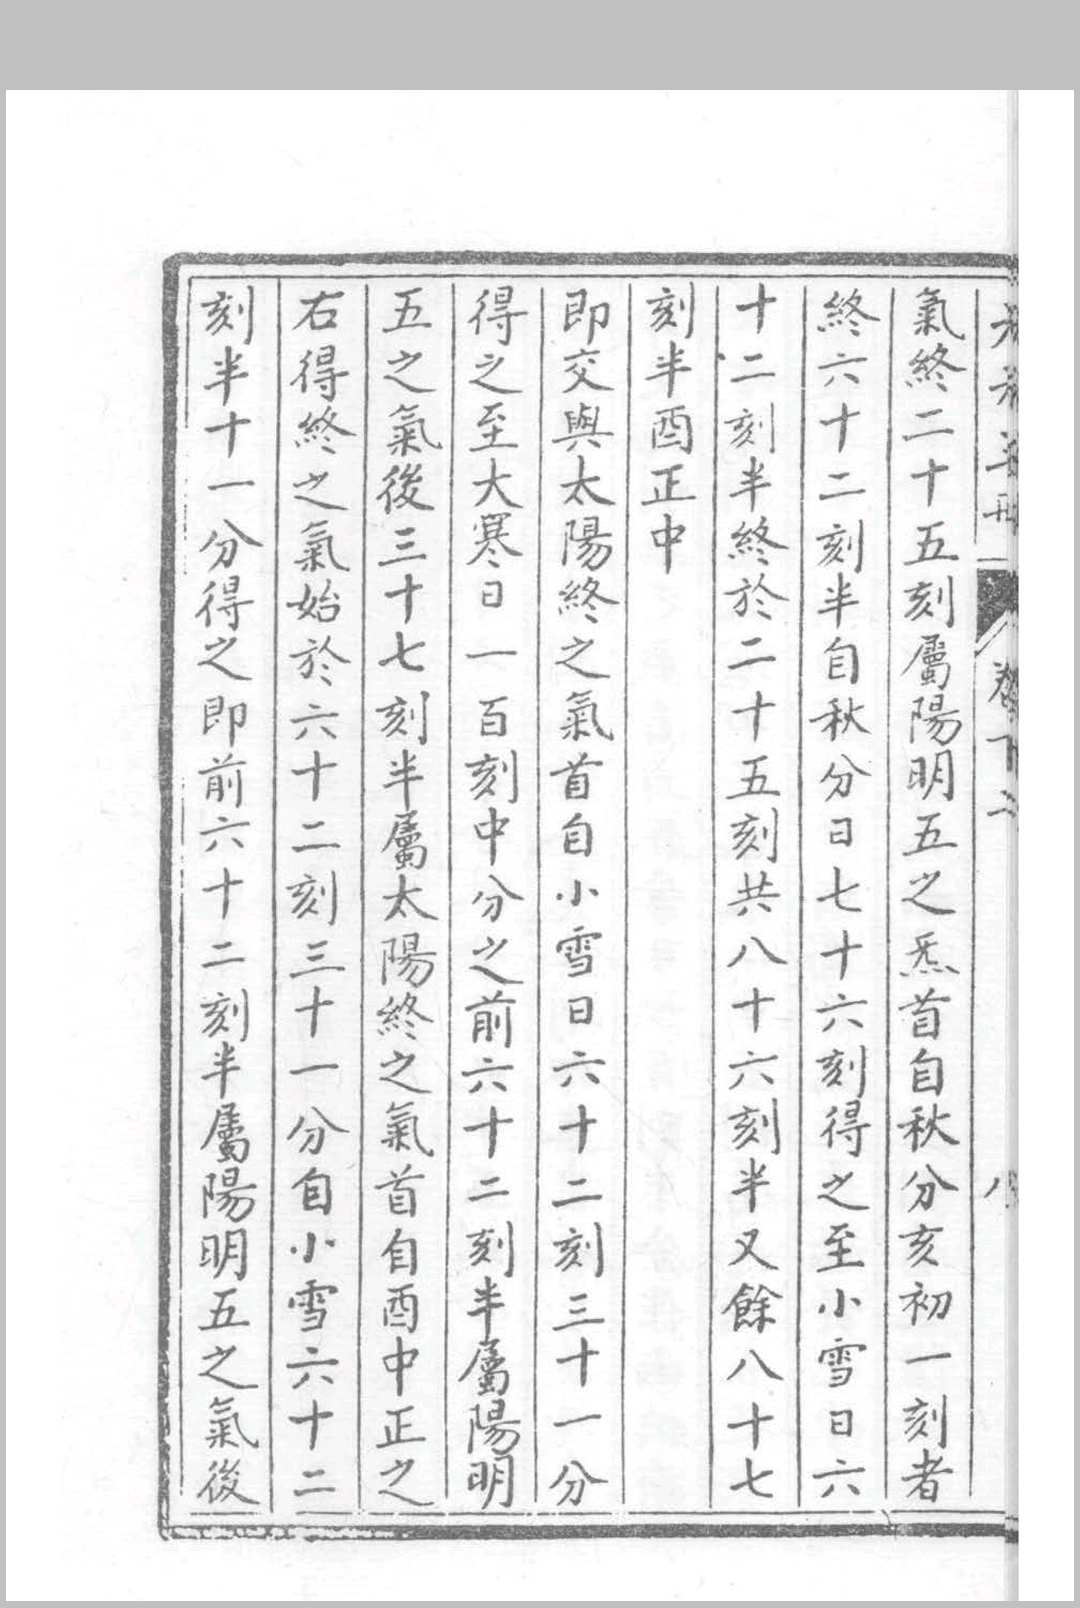 氣終二十五刻屬陽明五之炁首自秋分亥初一刻者
終六十二刻半自秋分日七十六刻得之至小雪日六
十二刻半終於二十五刻共八十六刻半又餘八十七
刻半酉正中
即交與太陽終之氣首自小雪日六十二刻三十一分
得之至大寒日一百刻中分之前六十二刻半屬陽明
五之氣後三十七刻半屬太陽終之氣首自酉中正之
右得終之氣始於六十二刻三十一分自小雪六十二
刻半十一分得之即前六十二刻半屬陽明五之氣後